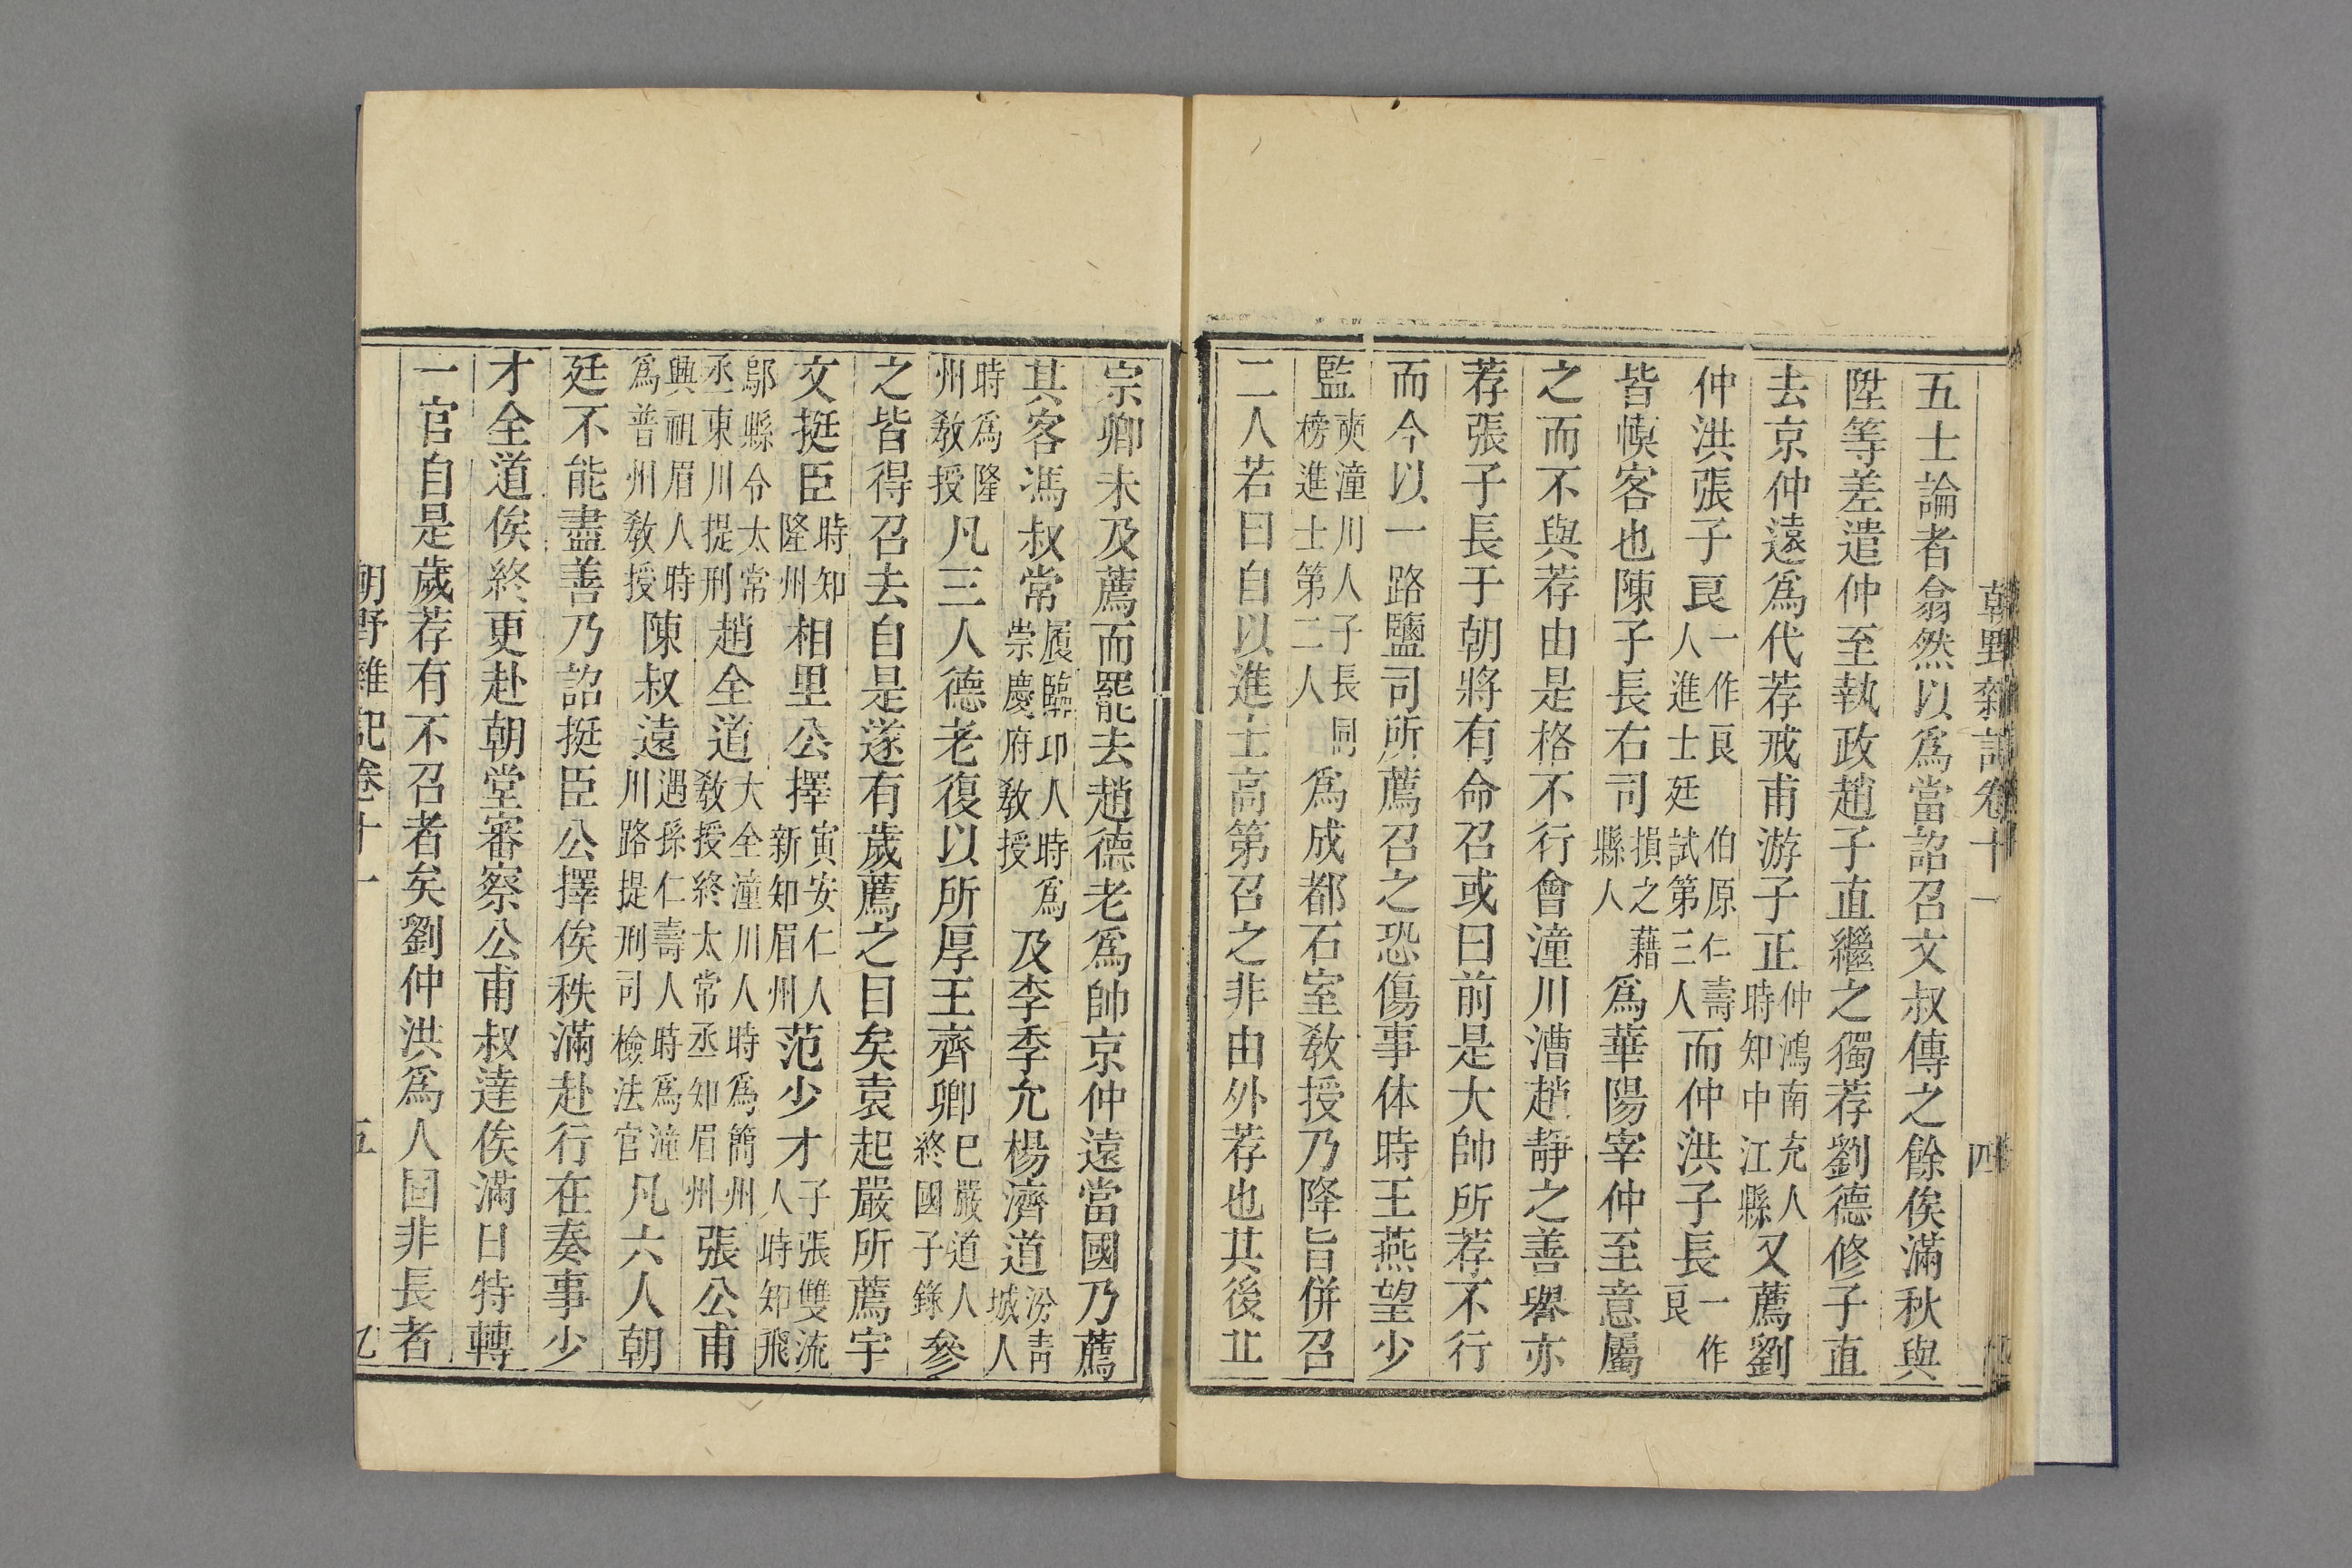 朝野雜記卷十一 四
五士論者翕然以爲當詔召文叔傳之餘俟滿秋與
陞等差遣仲至執政趙子直繼之獨荐劉德修子直
去京仲遠爲代荐戒甫游子正仲鴻南充人時知中江縣又薦劉
仲洪張子良一作良伯原仁壽人進士廷試第三人而仲洪子長一作良
皆慔客也陳子長右司損之藉縣人爲華陽宰仲至意屬
之而不與荐由是格不行會潼川漕趙靜之善舉亦
荐張子長于朝將有命召或曰前是大帥所荐不行
而今以一路鹽司所薦召之恐傷事体時王燕望少
監奭潼川人子長同榜進士第二人爲成都石室敎授乃降旨併召
二人若曰自以進士高第召之非由外荐也其後丘
宗卿未及薦而罷去趙德老爲帥京仲遠當國乃薦
其客馮叔常履臨卭人時爲崇慶府敎授及李季允楊濟道汾靑城人
時爲隆州敎授凡三人德老復以所厚王齊卿巳嚴道人終國子錄參
之皆得召去自是遂有歲薦之目矣袁起嚴所薦宇
文挺臣時知隆州相里公擇寅安仁人新知眉州范少才子張雙流人時知飛
鄔縣令太常丞東川提刑趙全道大全潼川人時爲簡州敎授終太常丞知眉州張公甫
興祖眉人時爲普州敎授陳叔遠遇孫仁壽人時爲潼川路提刑司檢法官凡六人朝
廷不能盡善乃詔挺臣公擇俟秩滿赴行在奏事少
才全道俟終更赴朝堂審察公甫叔達俟滿日特轉
一官自是歲荐有不召者矣劉仲洪爲人固非長者
朝野雜記卷十一 五 乙